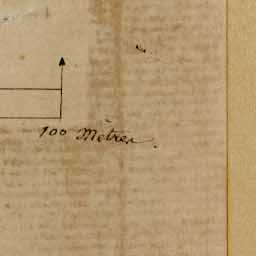 100 Mètres.